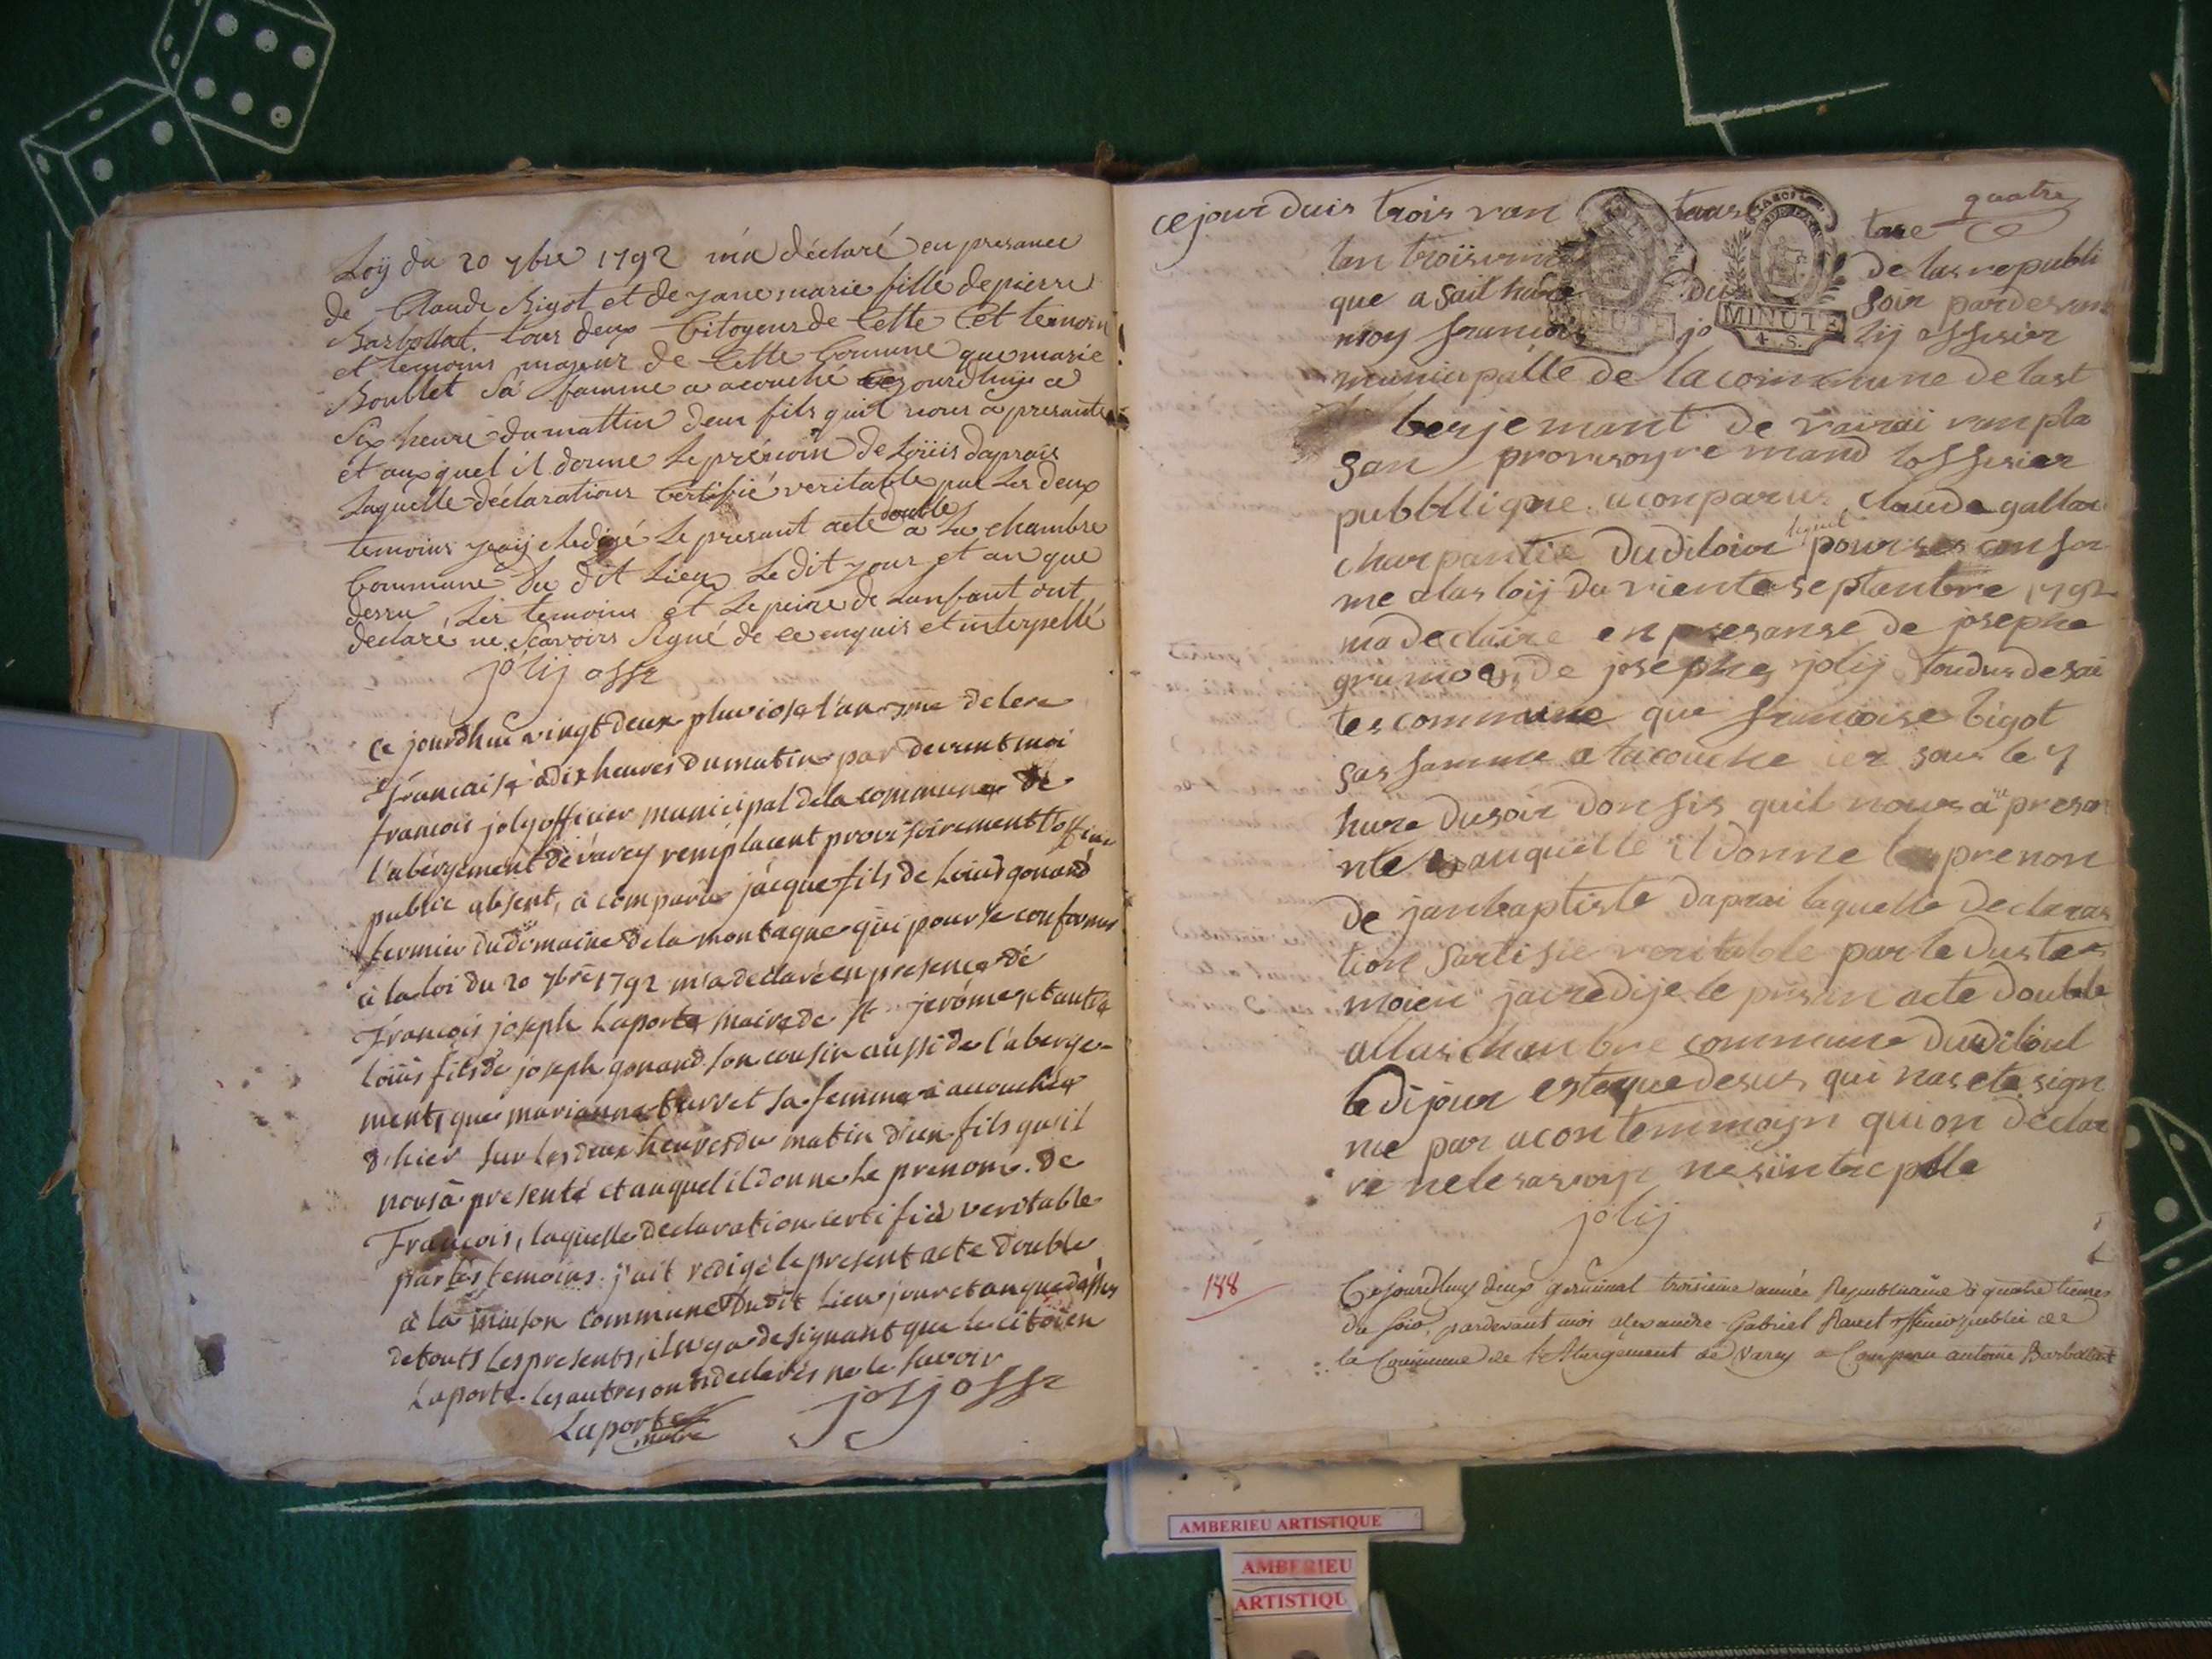 Loÿ du 20 7bre 1792 m'a déclaré en presance
de Claude Bigot et de jane marie fille de pierre
Barbollat tous deux Citoyens de Cette
et temoins majeur de Cette Comune que marie
Boullet sa famme a accouché ce jourdhuy a
six heure du mattin deun fils quil nous a presanté
et auxquel il donne Le prénom de Loüis daprais
Laquelle déclarations Certifié veritable par Les deux
temoins jeaij Redigé Le presant acte double a La chambre
Commune du dit Lieu Le dit jour et an que
dessu Les temoins et Le peire de Lanfant ont
declaré ne Scavoirs Signé de ce enquis et interpellé
jolij offr
Ce jourdhui vingt deux pluviose l'an 3me de lere
francaise à dix heures du matin par devent moi
francois joly officier municipal de la commune de
l'abergement de varey remplacent provisoirement l'officier
public absent, à comparu jacque fils de Louis gonand
fermier du domaine de la montagne qui pour se conformer
à la loi du 20 7bre 1792 m'a declaré en presence de
François joseph Laporte maire de St jerôme et autre
Loüis fils de joseph gonand son cousin aussi de l'aberge-
ment, que marianne survet sa femme a acouchée
d'hier sur les deux heures du matin d'un fils qu'il
nous à presenté et auquel il donne le prenom de
François, laquelle declaration certifiée veritable
par les temoins j'ait redigé le present acte double
à la maison commune dudit Lieu jour et an que dessus
de touts les presents, il n'y a de signant que le citoien
Laporte. les autres ont declarés ne le savoir
Laporte jolij offr
maire
quatre
ce jour duis trois van tause tase
lan troisieme de las republi
que a sait hure du soir pardevan
moy francois jo lij offisier
municipalle de la commune de last
berjemant de vairai ranpla
san provisoyremand loffisier
pubbligue a conparus Claude gallai
charpantie dudiloior lequel pour ses confor
me a las loij du viente septanbre 1792
ma declaire en presanse de josephe
grumod, de josephe jolij toudus de sai
tes commune que francoise bigot
sas famme a lacouche ier sour le 7
hure du soir don fis quil nous a presan
nte auquelle il donne le prenon
de janbaptiste daprai laquelle declaras
tion sartifie veritable par le dus te
moien jai redije le prisin acte double
a llas chanbre commune dudiloul
le dijour este que desus qui nas ete sign
nie par acon temmoyn qui on declar
re ne le savoyr ne sintrepelle
jolij
188
Cejourdhuy deux germinal troisieme année Republicaine à quatre heures
du soir, pardevant moi alexandre Gabriel Ravet officier public de
la Commune de l'Abergement de Varey a Comparu antoine Barbollat
MINUTE
MINUTE
4. S.
AMBERIEU ARTISTIQUE
AMBERIEU
ARTISTIQU